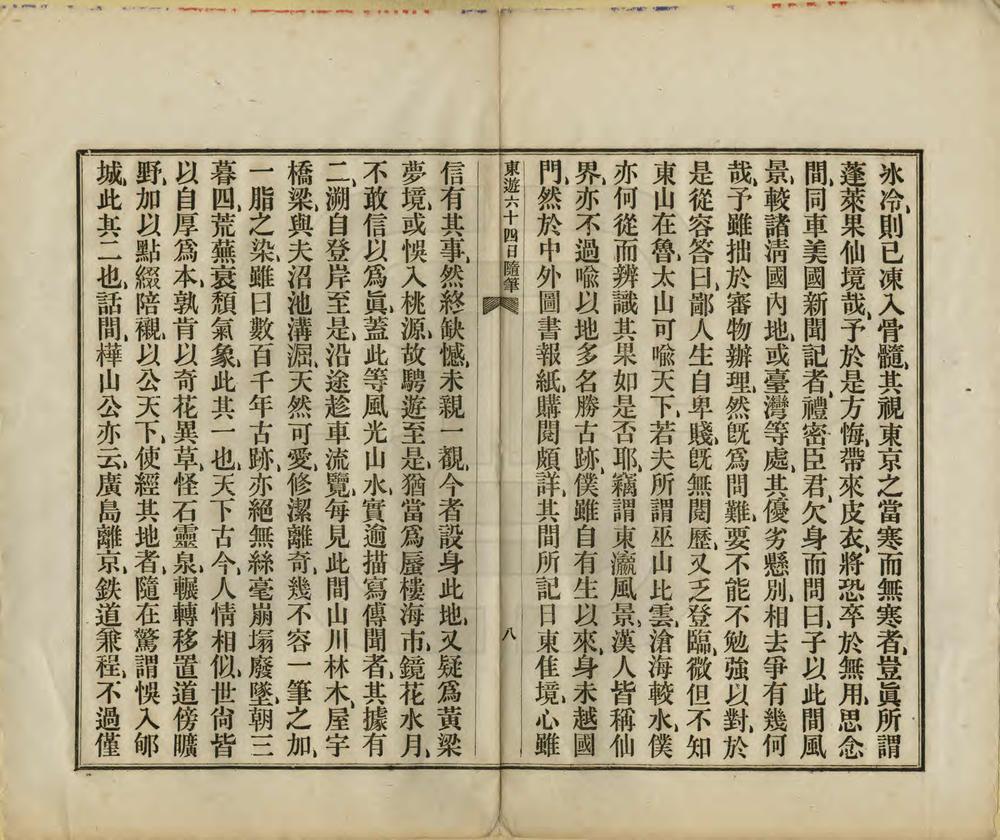 氷冷、則已凍入骨髓、其視東京之當寒而無寒者、豈眞所謂
蓬萊果仙境哉、予於是方悔、帶來皮衣、將恐卒於無用、思念
間、同車美國新聞記者、禮密臣君、欠身而問曰、子以此間風
景、較諸淸國內地、或臺灣等處、其優劣懸別、相去爭有幾何
哉、予雖拙於審物辦理、然旣爲問難、要不能不勉強以對、於
是從容答曰、鄙人生自卑賤、旣無閱歷、又乏登臨、微但不知
東山在魯、太山可喩天下、若夫所謂巫山比雲、滄海較水、僕
亦何從而辨識其果如是否耶、竊謂東瀛風景、漢人皆稱仙
界、亦不過喩以地多名勝古跡、僕雖自有生以來、身未越國
門、然於中外圖書報紙、購閱頗詳、其間所記日東佳境、心雖
東遊六十四日隨筆
八
信有其事、然終缺憾、未親一覩、今者設身此地、又疑爲黃梁
夢境、或悞入桃源、故騁遊至是、猶當爲蜃樓海市、鏡花水月、
不敢信以爲眞、蓋此等風光山水、實逾描寫傳聞者、其據有
二、溯自登岸至是、沿途趁車流覽、每見此間山川林木、屋宇
橋梁、與夫沼池溝淈、天然可愛、修潔離奇、幾不容一筆之加、
一脂之染、雖曰數百千年古跡、亦絕無絲毫崩塌廢墜、朝三
暮四、荒蕪衰頹氣象、此其一也、天下古今、人情相似、世尙皆
以自厚爲本、孰肯以奇花異草、怪石靈泉、輾轉移置道傍曠
野、加以點綴陪襯、以公天下、使經其地者、隨在驚謂悞入郇
城、此其二也、話間、樺山公亦云、廣島離京、鉄道兼程、不過僅